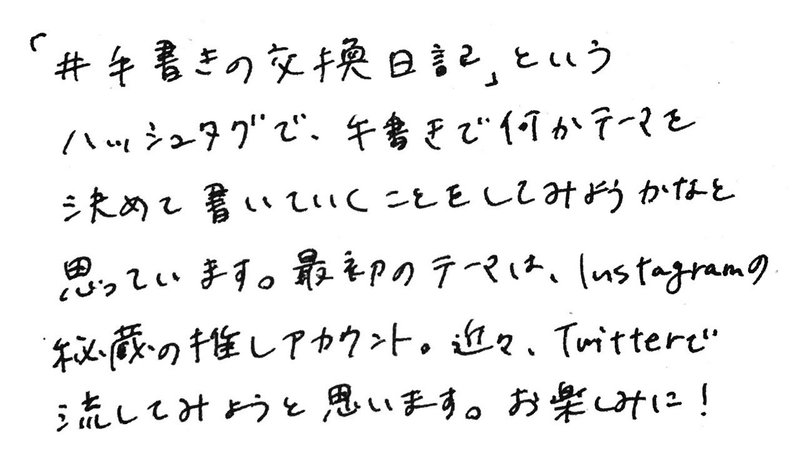 「#手書きの交換日記」という
ハッシュタグで、手書きで何かテーマを
決めて書いていくことをしてみようかなと
思っています。最初のテーマは、Instagramの
秘蔵の推しアカウント。近々、Twitterで
流してみようと思います。お楽しみに!